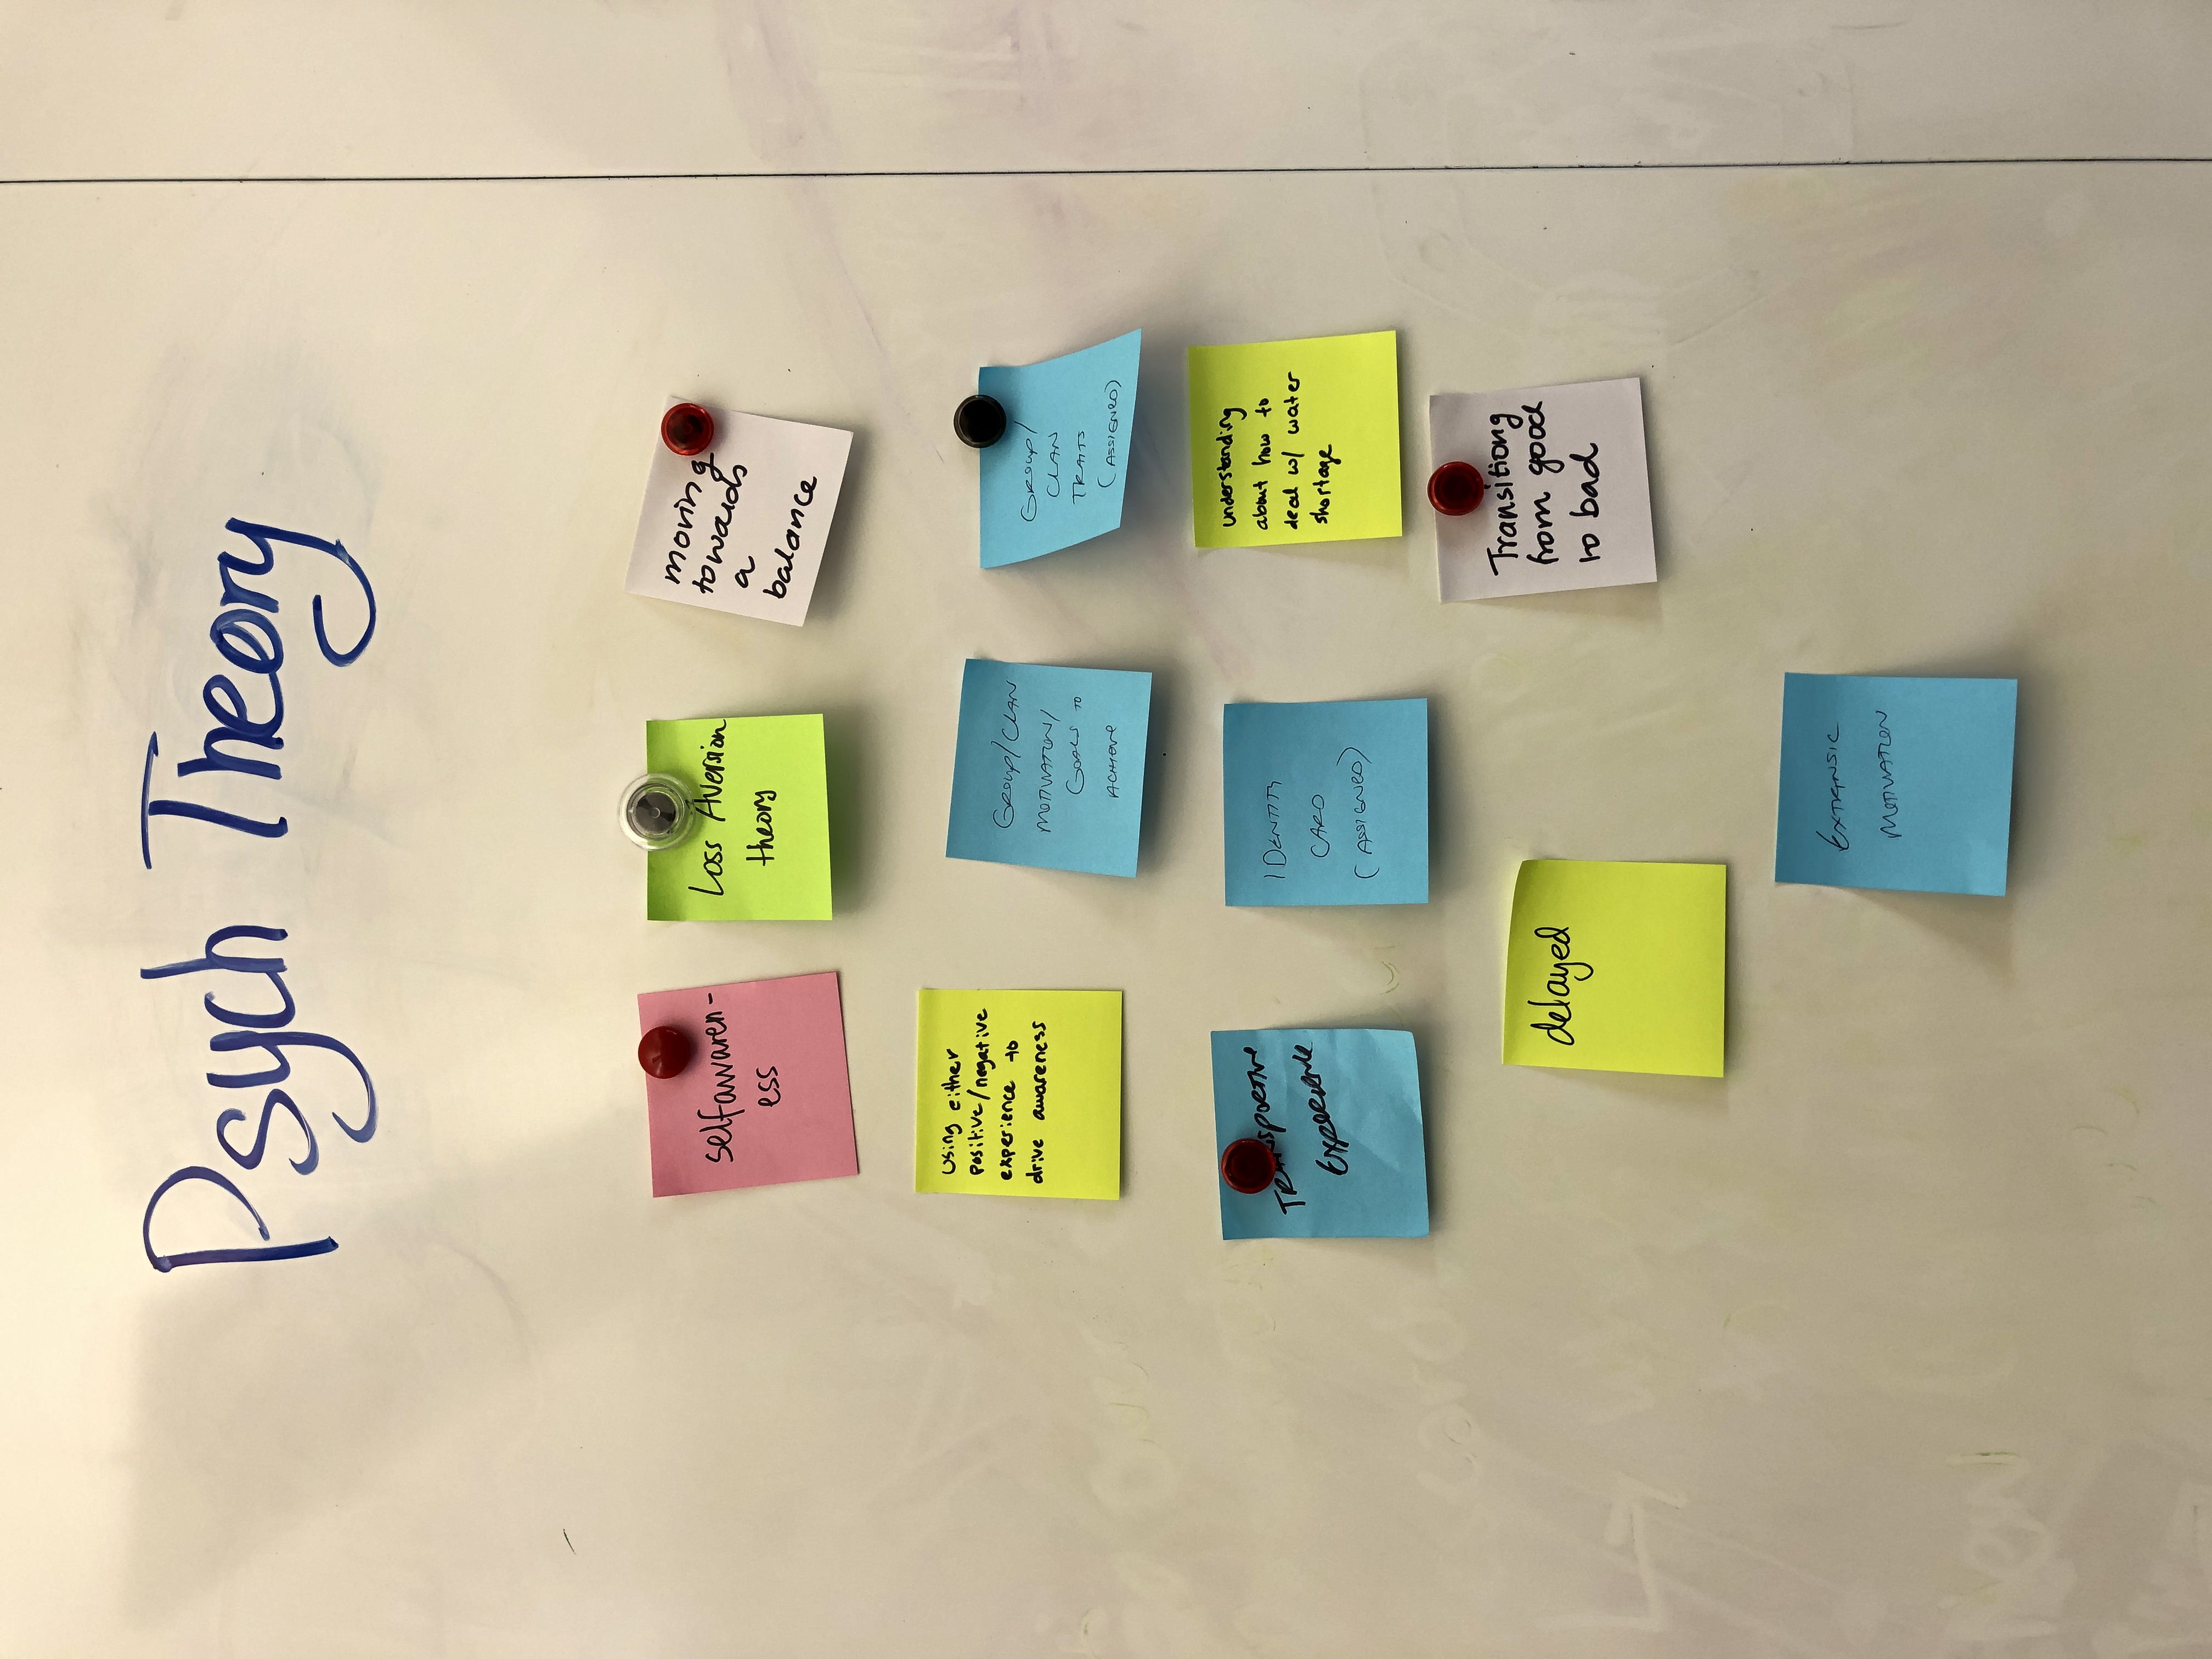 Psych Theory
selfawaren-
ess
Loss Aversion
theory
moving
towards
a
balance
using either
positive/negative
experience to
drive awareness
GROUP/CLAN
MOTIVATION/
GOALS TO
ACHIEVE
GROUP/
CLAN
TRAITS
(ASSIGNED)
TRANSPORTIVE
EXPERIENCE
IDENTITY
CARD
(ASSIGNED)
understanding
about how to
deal w/ water
shortage
delayed
Transitiong
from good
to bad
EXTRINSIC
MOTIVATION